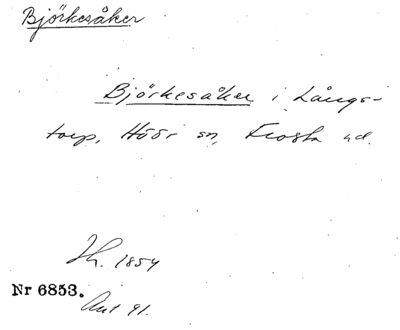 Björkesåker
Björkesåker i Långs-
torp, Höör sn, Frosta hd.
Th. 1854
Nr 6853.
Ant 91.